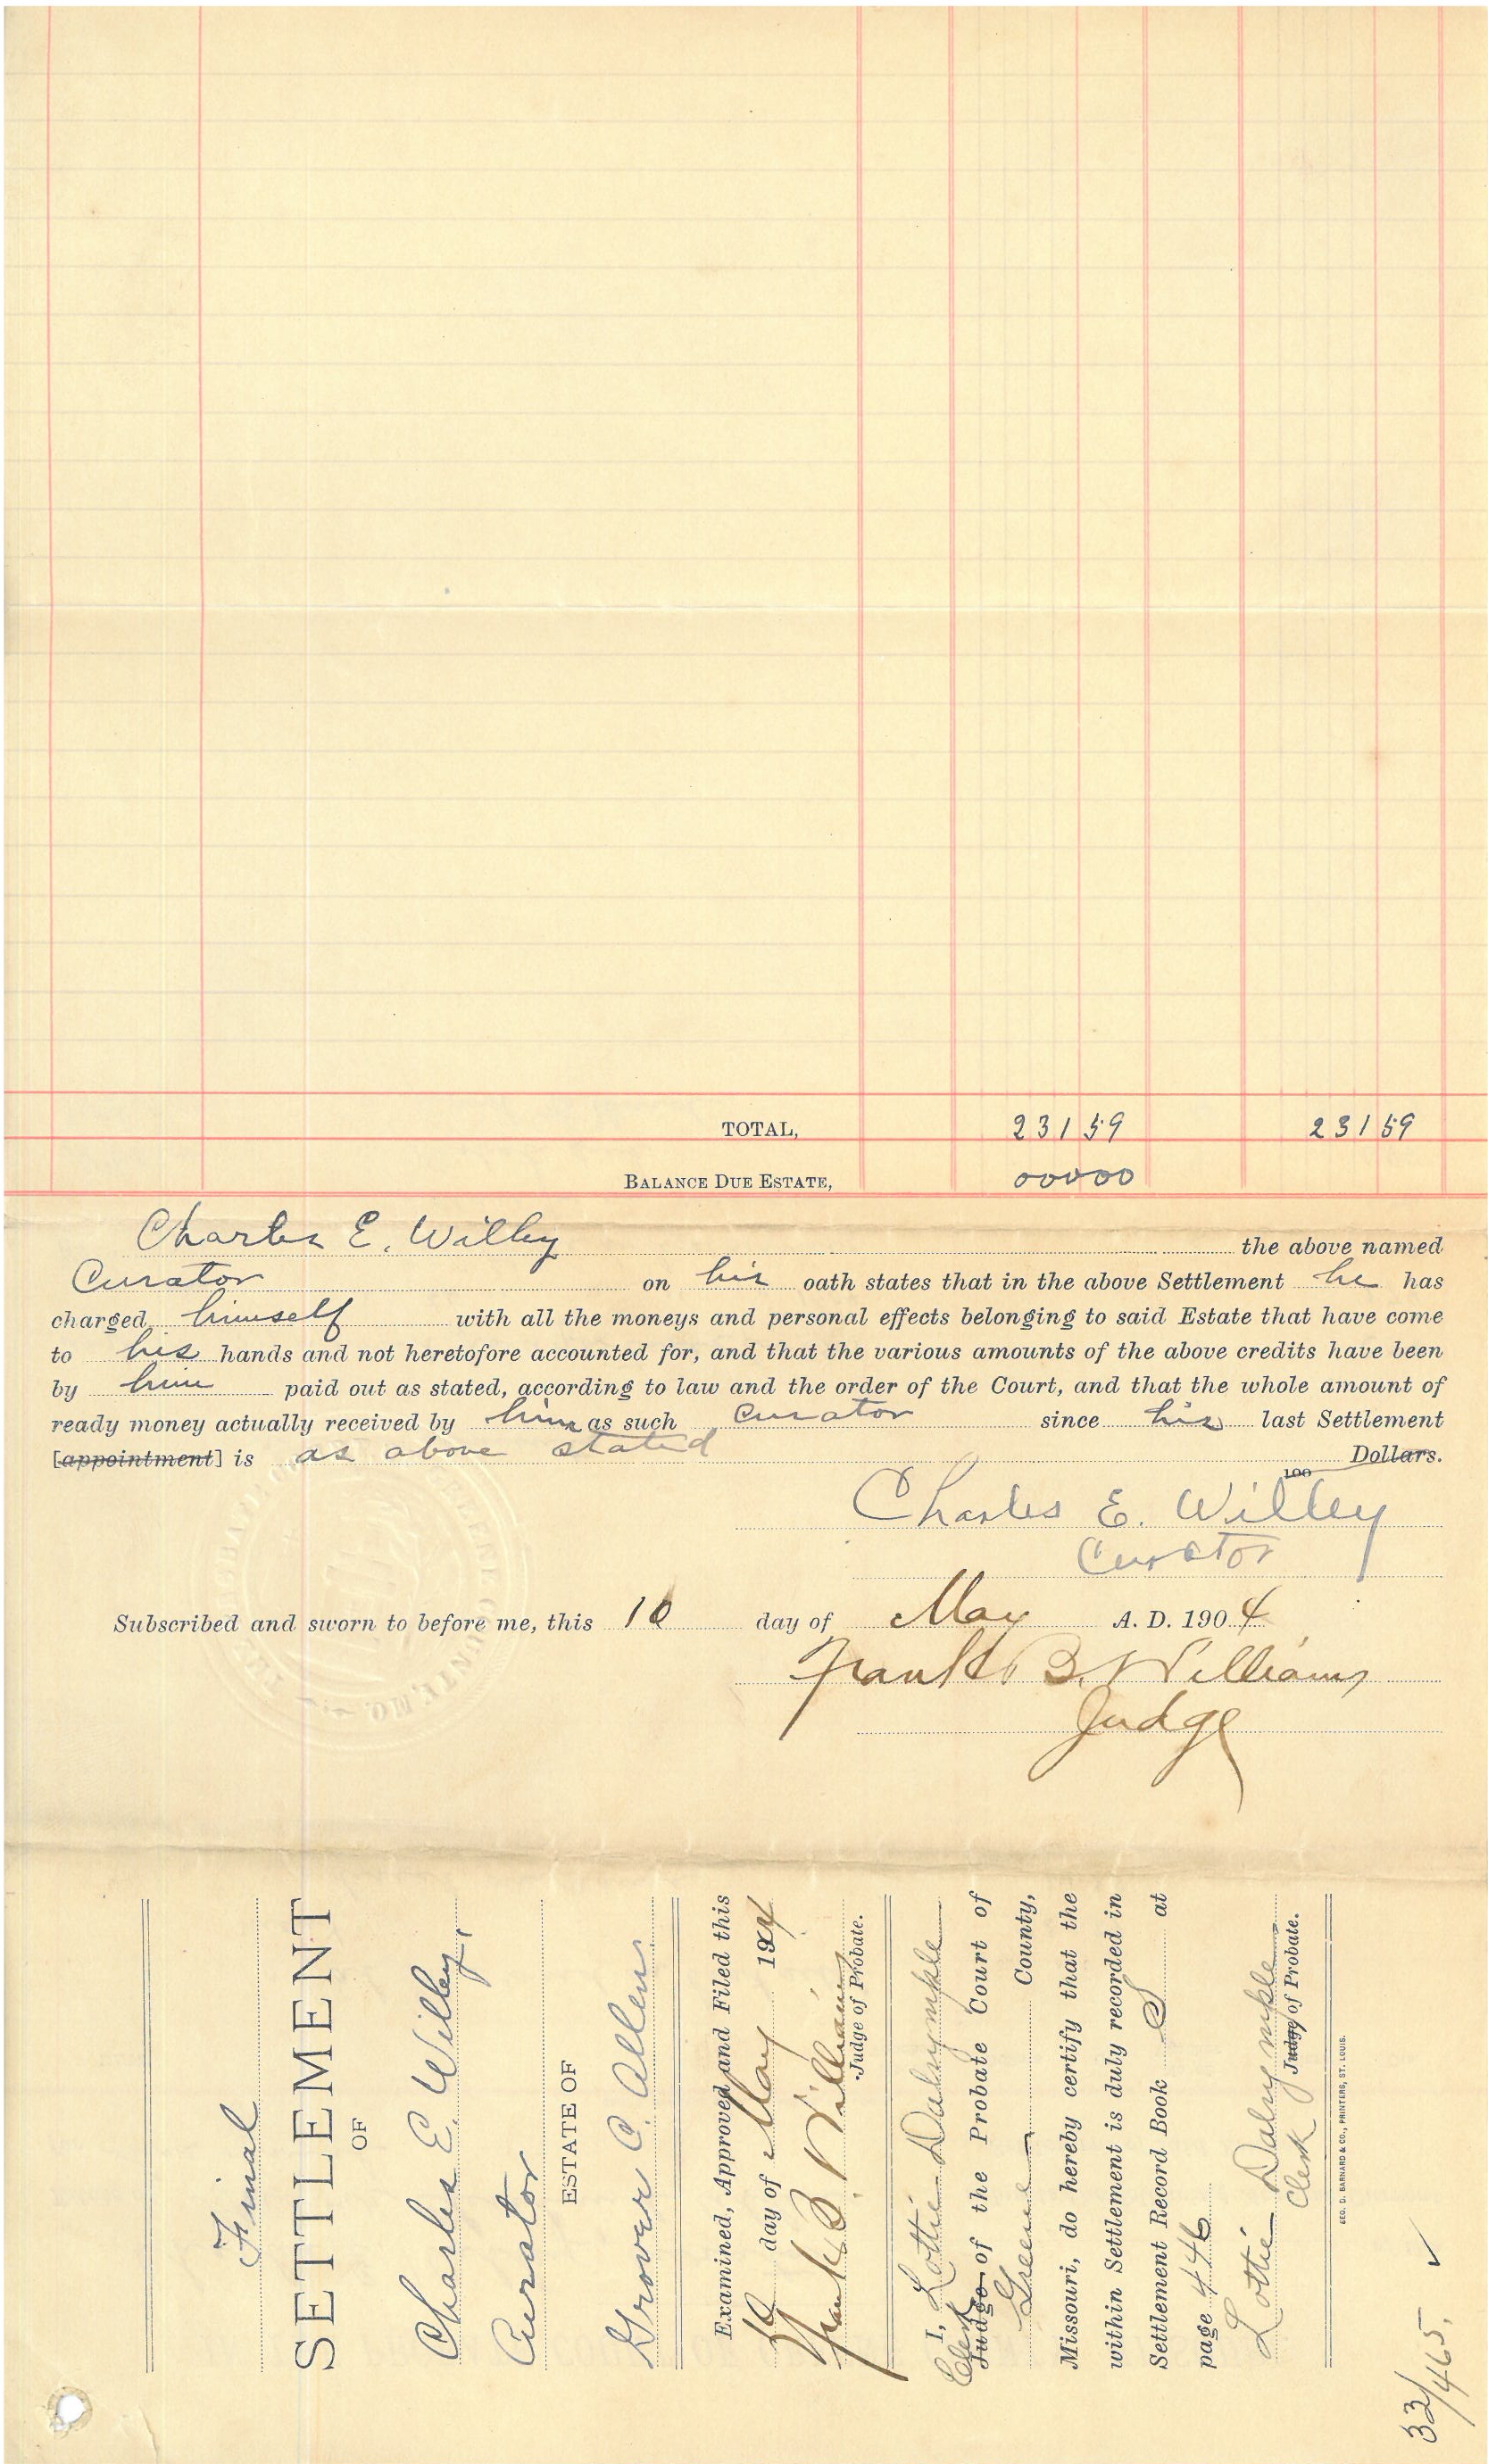 TOTAL, 231 59 231 59
BALANCE DUE ESTATE, 000 00
Charles E. Willey the above named
Curator on his oath states that in the above Settlement he has
charged himself with all the moneys and personal effects belonging to said Estate that have come
to his hands and not heretofore accounted for, and that the various amounts of the above credits have been
by him paid out as stated, according to law and the order of the Court, and that the whole amount of
ready money actually received by him as such Curator since his last Settlement
[appointment] is as above stated Dollars.
100
Charles E. Willey
Curator
Subscribed and sworn to before me, this 10 day of May A. D. 1904
Frank B. Williams
Judge
Final
SETTLEMENT
OF
Charles E. Willey,
Curator
ESTATE OF
Grover C. Allen
Examined, Approved and Filed this
10 day of May 1904
Frank B. Williams
Judge of Probate.
I, Lottie Dalrymple
Clerk
Judge of the Probate Court of
Greene County,
Missouri, do hereby certify that the
within Settlement is duly recorded in
Settlement Record Book S at
page 446
Lottie Dalrymple
Clerk Judge of Probate.
GEO. D. BARNARD & CO., PRINTERS, ST. LOUIS.
33/465. ✓